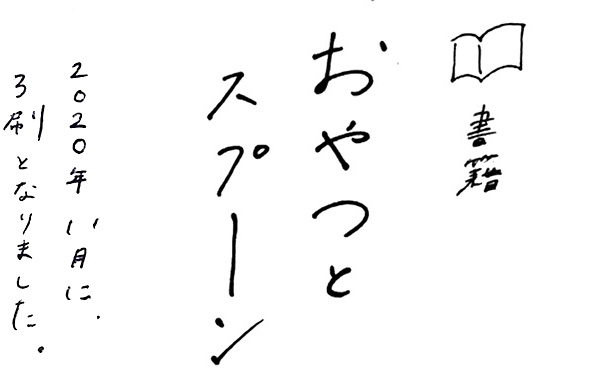 書籍
おやつと
スプーン
2020年11月に、
3刷となりました。